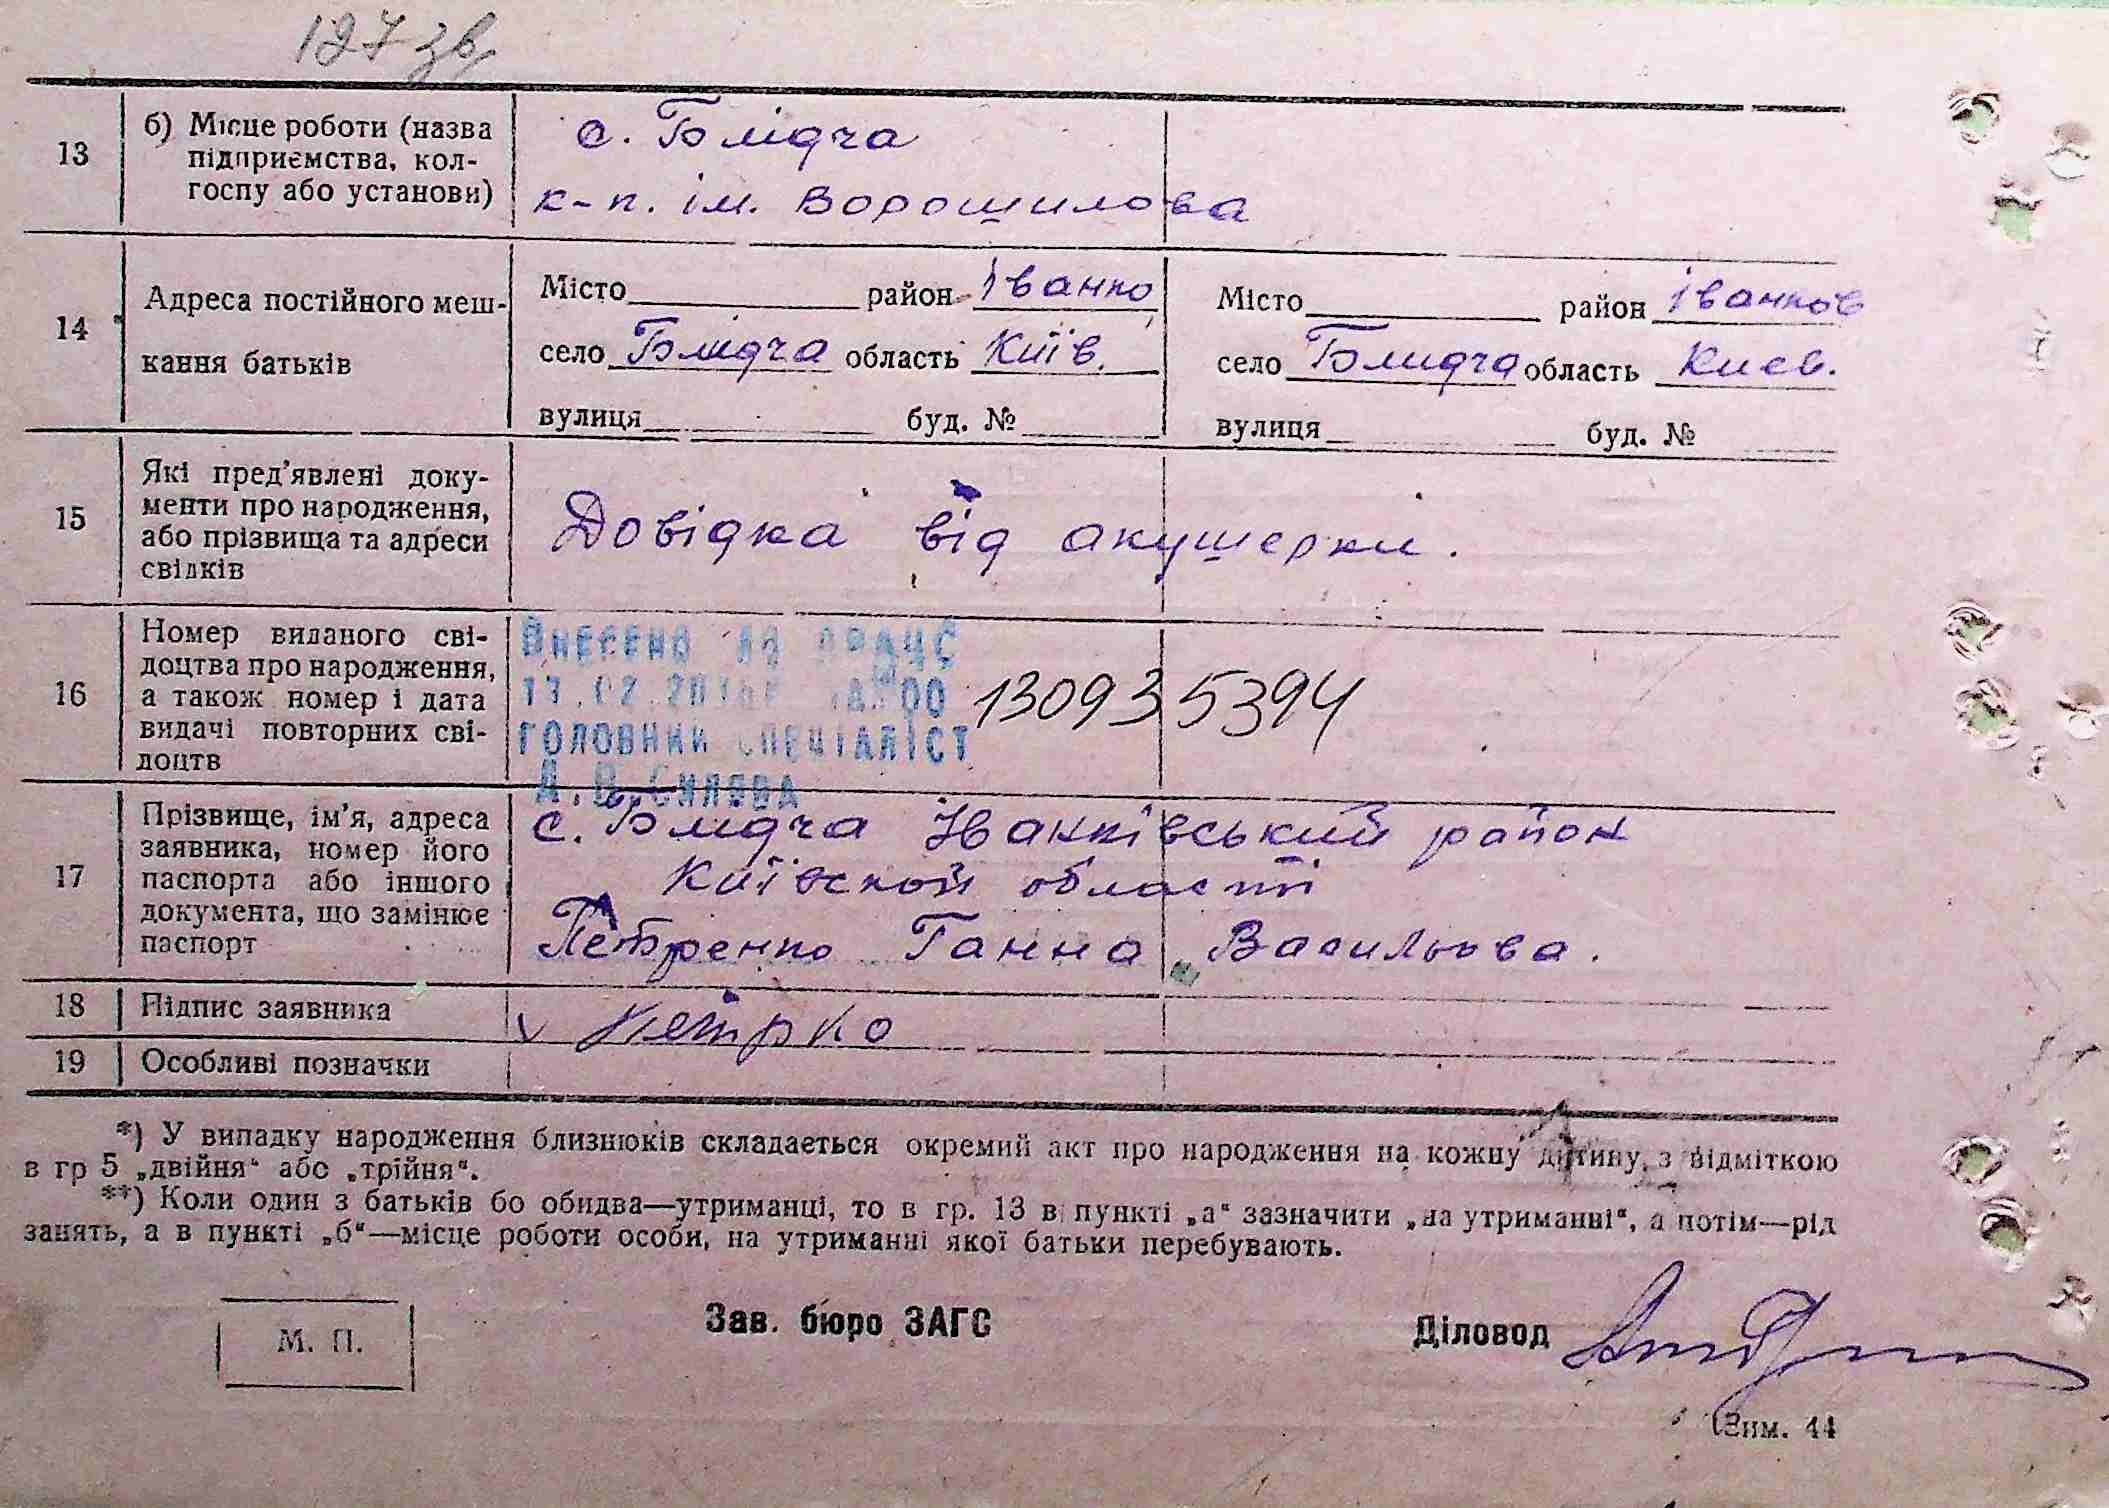 127 зв
13
б) Місце роботи (назва
підприємства, кол-
госпу або установи)
с. Блідча
к-п. ім. Ворошилова
14
Адреса постійного меш-
кання батьків
Місто район Іванко
село Блидча область Київ.
вулиця буд. №
Місто район Іванков
село Блидча область Киев.
вулиця буд. №
15
Які пред’явлені доку-
менти про народження,
або прізвища та адреси
свідків
Довідка від акушерки.
16
Номер виданого сві-
доцтва про народження,
а також номер і дата
видачі повторних сві-
доцтв
ВНЕСЕНО ДО ДРАЦС
ГОЛОВНИЙ СПЕЦІАЛІСТ
130935394
17
Прізвище, ім’я, адреса
заявника, номер його
паспорта або іншого
документа, що замінює
паспорт
с. Блидча Іванківський район
Київской області
Петренко Ганна Васильова.
18
Підпис заявника
v Петрко
19
Особливі позначки
*) У випадку народження близнюків складається окремий акт про народження на кожну дитину, з відміткою
в гр 5 „двійня“ або „трійня“.
**) Коли один з батьків бо обидва—утриманці, то в гр. 13 в пункті „а“ зазначити „на утриманні“, а потім—рід
занять, а в пункті „б“—місце роботи особи, на утриманні якої батьки перебувають.
М. П.
Зав. бюро ЗАГС
Діловод
Зим. 44